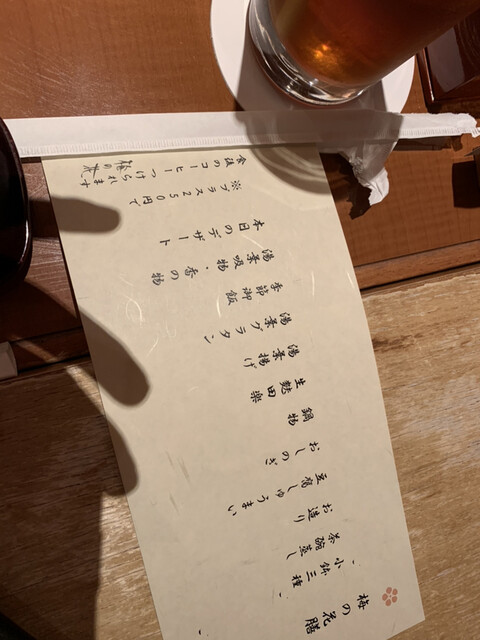 梅の花膳
小鉢三種
茶碗蒸し
お造り
豆腐しゅうまい
おしのぎ
鍋物
生麩田楽
湯葉揚げ
湯葉グラタン
季節御飯
湯葉吸物・香の物
本日のデザート
※プラス２５０円で
食後のコーヒーつけられます
梅の花